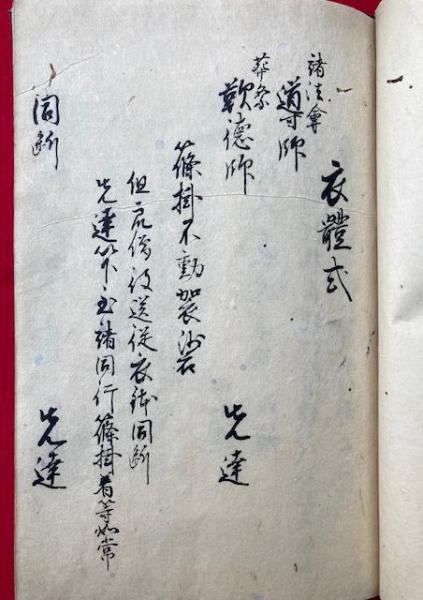 衣體式
諸法會
導師
葬祭
歎德師
先達
篠掛不動袈裟
但
送從衣鉢同断
先達
下
諸同行篠掛着等如常
同断
先達